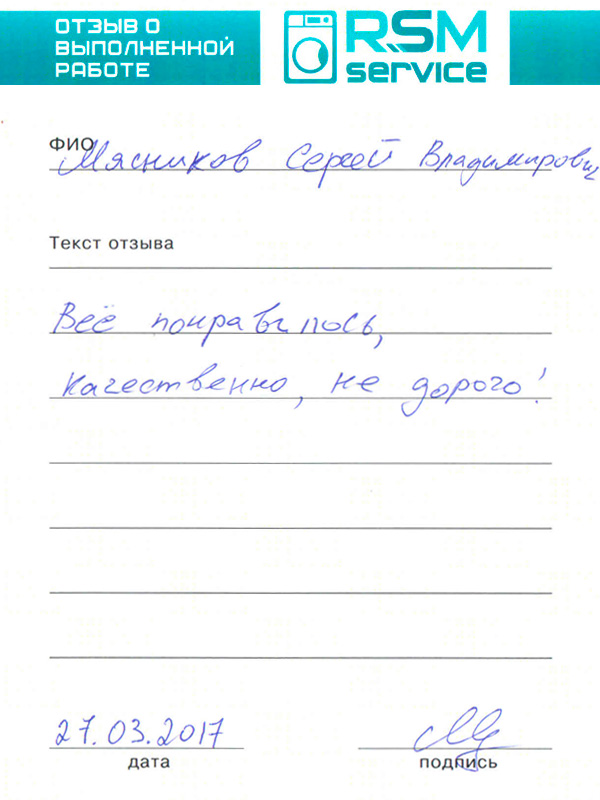 ОТЗЫВ О
ВЫПОЛНЕННОЙ
РАБОТЕ
RSM
service
ФИО Мясников Сергей Владимирович
Текст отзыва
Всё понравилось,
качественно, не дорого!
27.03.2017
дата
подпись